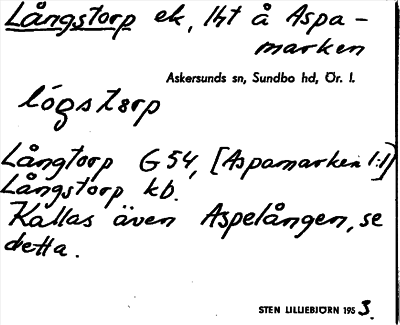 Långstorp ek, lht å Aspa-
marken
Askersunds sn, Sundbo hd, Ör. l.
lógstorp
Långtorp G 54, [Aspamarken 1:1]
Långstorp kb.
Kallas även Aspelången, se
detta.
STEN LILLIEBJÖRN 1953.